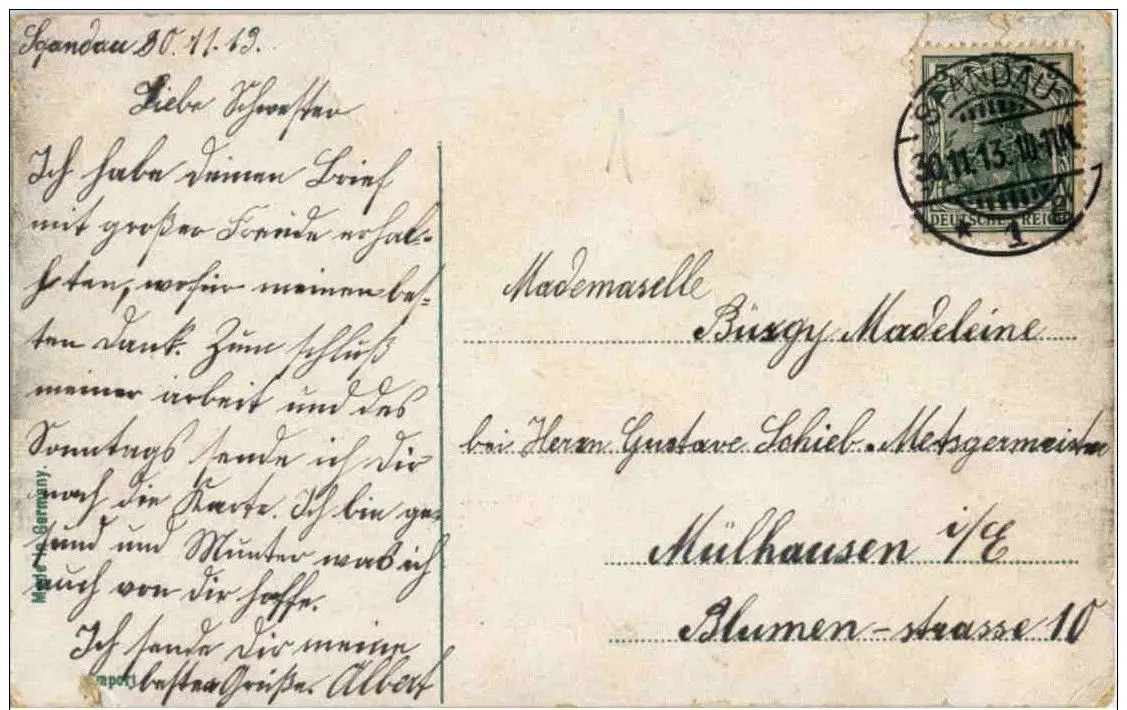 Spandau 30.11.13.
Liebe Schwester
Ich habe deinen Brief
mit großer Freude erhal-
ten, wofür meinen bes-
ten Dank. Zum schluß
meiner arbeit und des
Sonntags sende ich dir
noch die Karte. Ich bin ge-
sund und Munter was ich
auch von dir hoffe.
Ich sende dir meine
besten Grüße. Albert
Made in Germany.
Import
5 5
SPANDAU
30.11.13. 10-11N
DEUTSCHES REICH
* 1 a
Mademaselle
Büsgy Madeleine
bei Herrn Gustave Schieb-Metsgermeister
Mülhausen i/E
Blumen-strasse 10